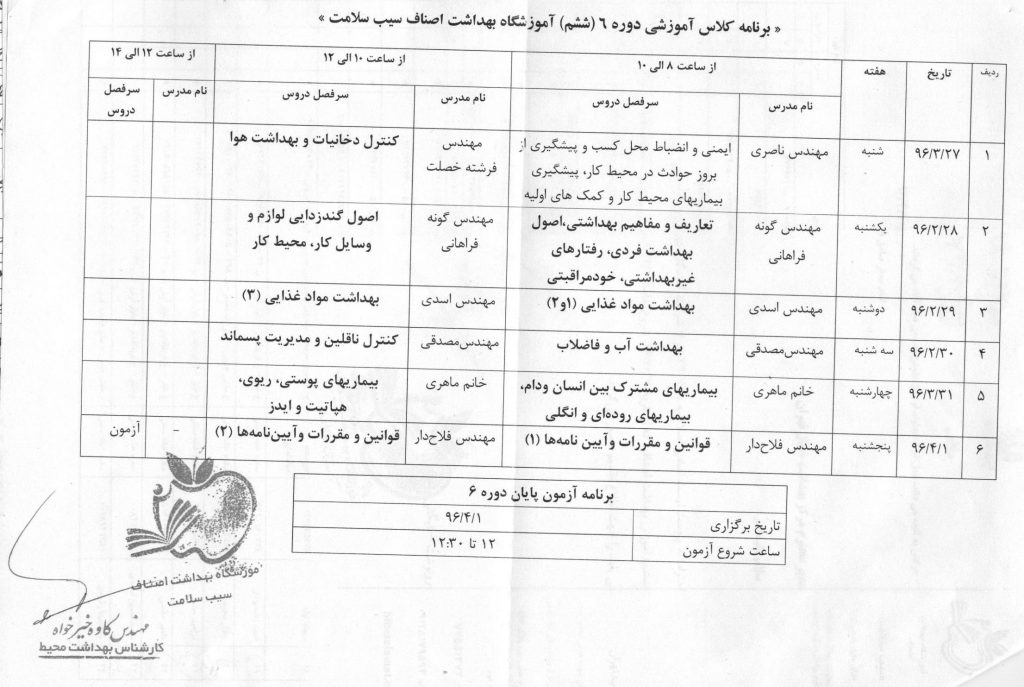 « برنامه کلاس آموزشی دوره ۶ (ششم) آموزشگاه بهداشت اصناف سیب سلامت »
ردیف هفته تاریخ از ساعت ۸ الی ۱۰ از ساعت ۱۰ الی ۱۲ از ساعت ۱۲ الی ۱۴
نام مدرس سرفصل دروس نام مدرس سرفصل دروس نام مدرس سرفصل
دروس
۱ ۹۶/۳/۲۷ شنبه مهندس ناصری ایمنی و انضباط محل کسب و پیشگیری از مهندس کنترل دخانیات و بهداشت هوا
بروز حوادث در محیط کار، پیشگیری فرشته خصلت
بیماریهای محیط کار و کمک های اولیه
۲ ۹۶/۲/۲۸ یکشنبه مهندس گونه تعاریف و مفاهیم بهداشتی،اصول مهندس گونه اصول گندزدایی لوازم و
فراهانی بهداشت فردی، رفتارهای فراهانی وسایل کار، محیط کار
غیربهداشتی، خودمراقبتی
۳ ۹۶/۲/۲۹ دوشنبه مهندس اسدی بهداشت مواد غذایی (۱و۲) مهندس اسدی بهداشت مواد غذایی (۳)
۴ ۹۶/۲/۳۰ سه شنبه مهندس‌مصدقی بهداشت آب و فاضلاب مهندس‌مصدقی کنترل ناقلین و مدیریت پسماند
۵ ۹۶/۳/۳۱ چهارشنبه خانم ماهری بیماریهای مشترک بین انسان ودام، خانم ماهری بیماریهای پوستی، ریوی،
بیماریهای روده‌ای و انگلی هپاتیت و ایدز
۶ ۹۶/۴/۱ پنجشنبه مهندس فلاح‌دار قوانین و مقررات وآیین نامه‌ها (۱) مهندس فلاح‌دار قوانین و مقررات وآیین‌نامه‌ها (۲) - آزمون
برنامه آزمون پایان دوره ۶
تاریخ برگزاری ۹۶/۴/۱
ساعت شروع آزمون ۱۲ تا ۱۲:۳۰
موزشگاه بهداشت اصناف
سیب سلامت
مهندس کاوه خیرخواه
کارشناس بهداشت محیط